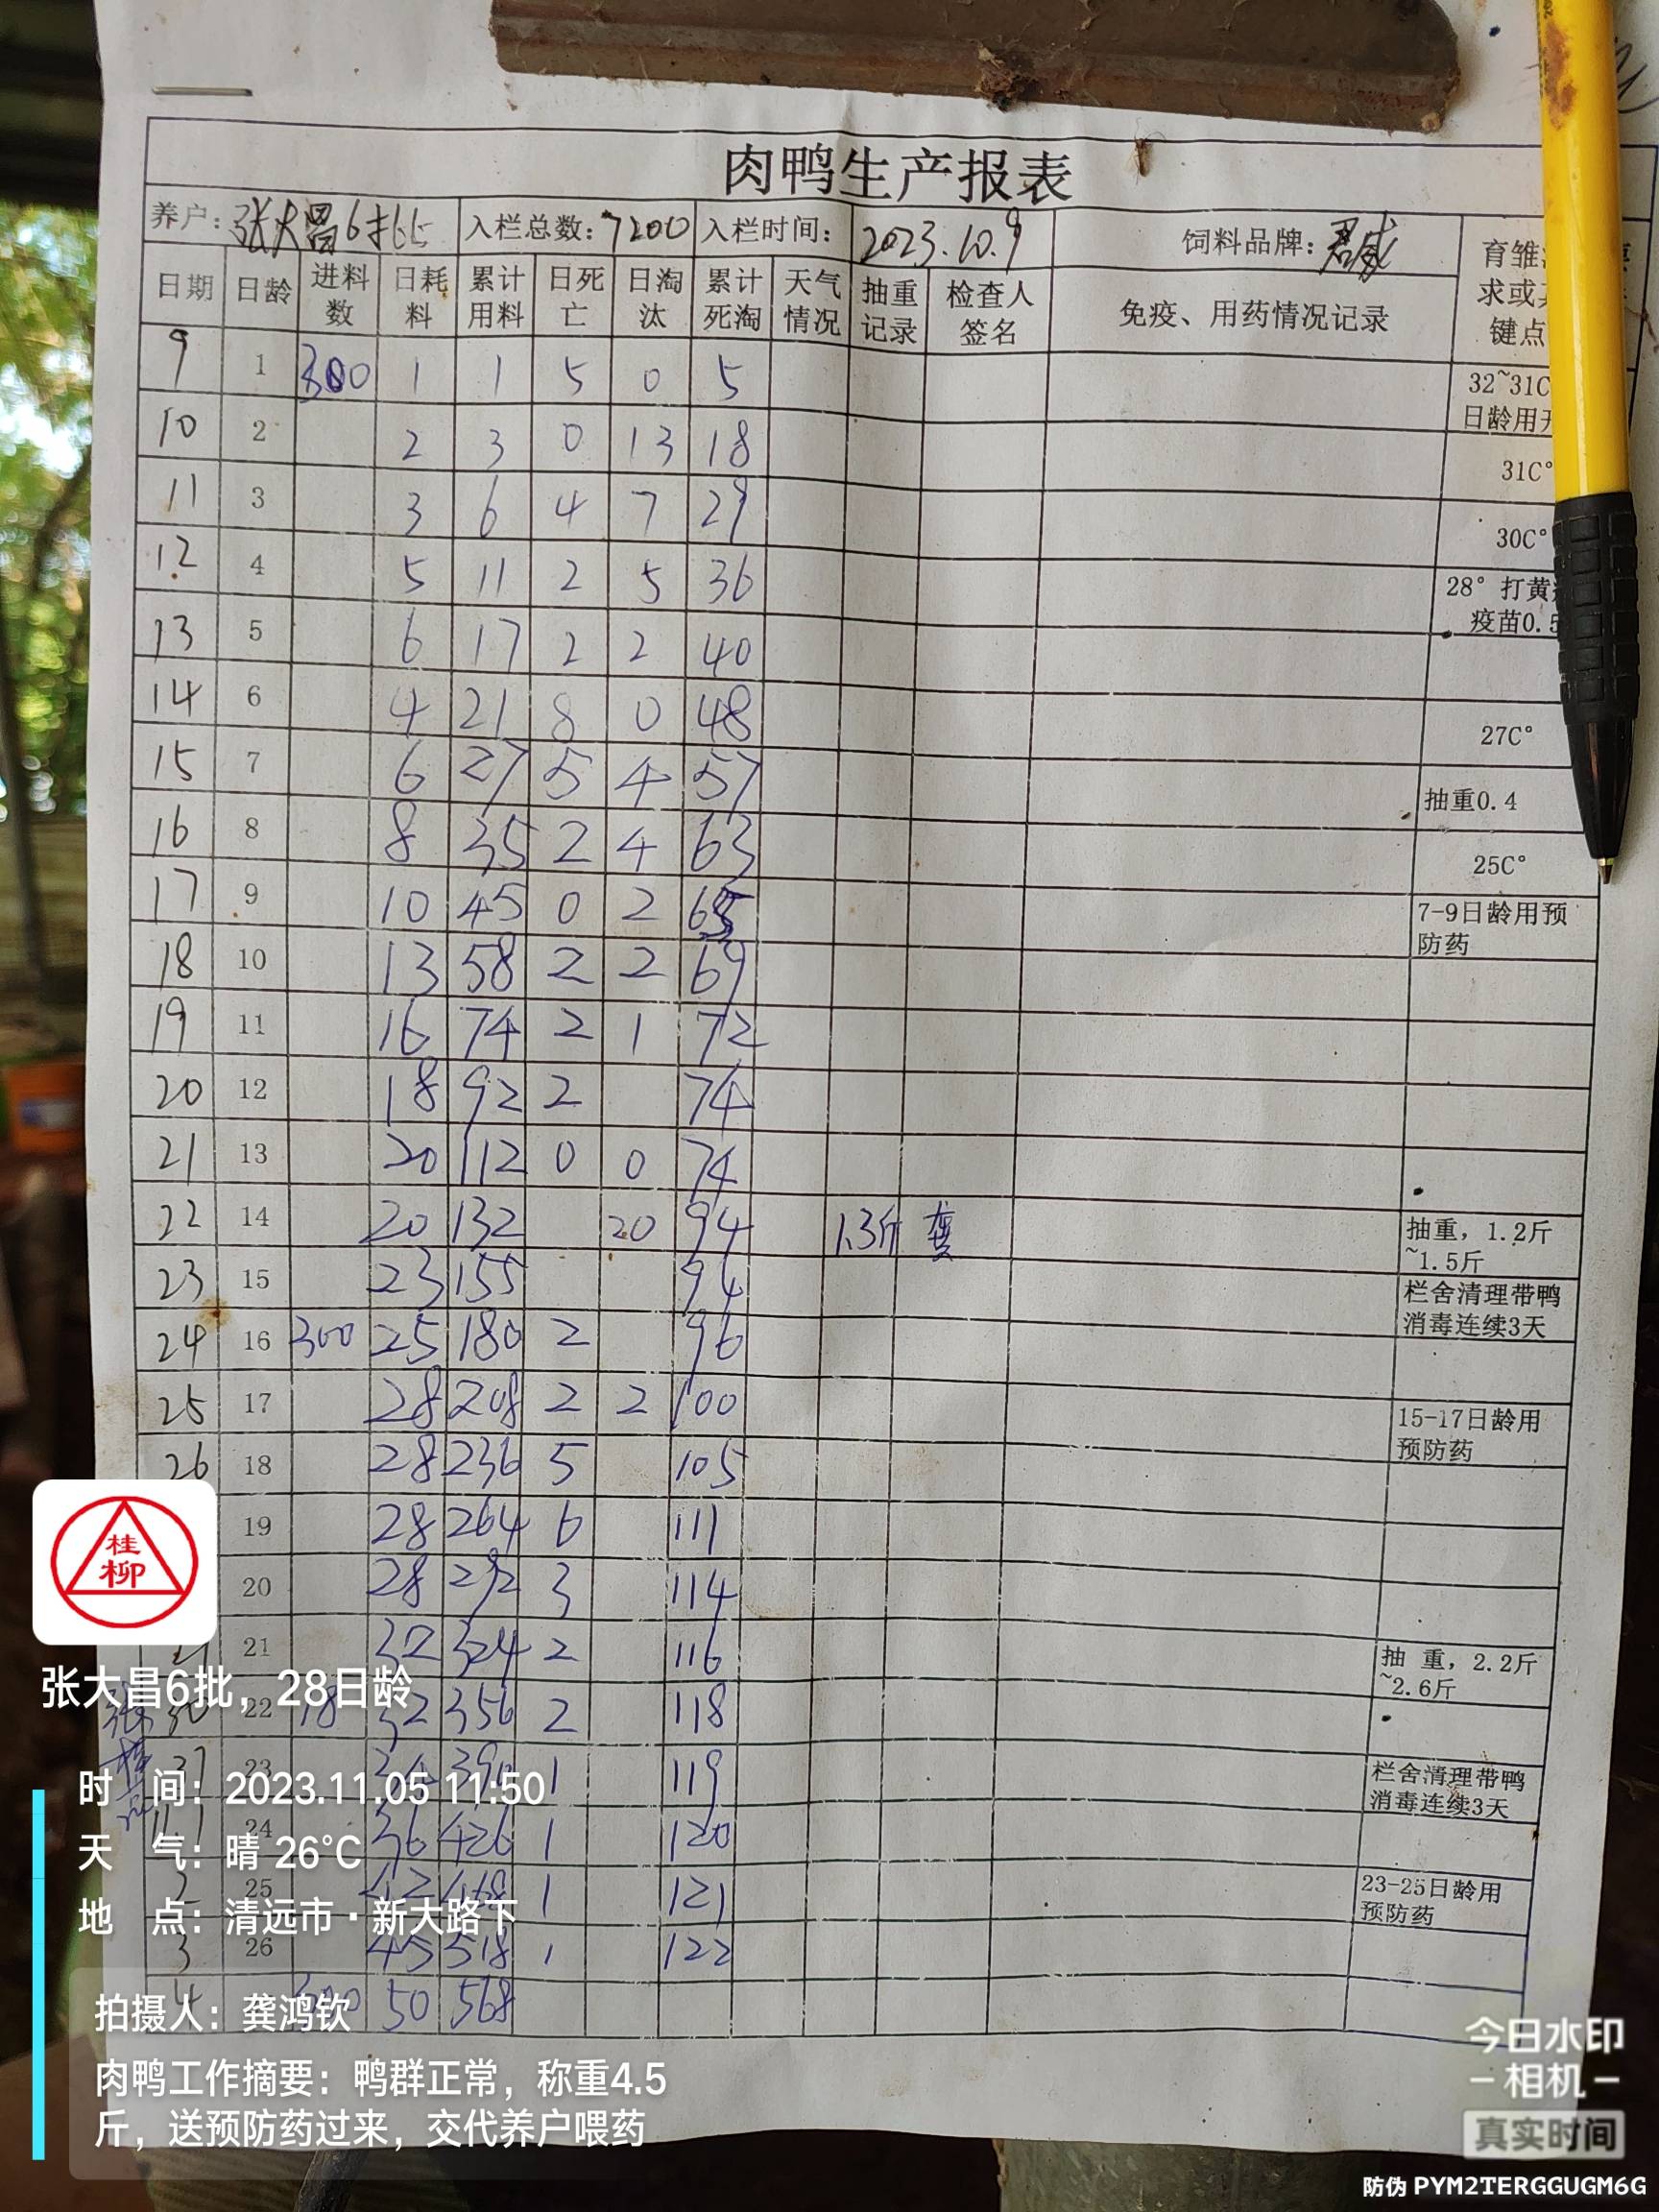 肉鸭生产报表
养户：张大昌6批 入栏总数：7200 入栏时间： 2023.10.9 饲料品牌：君威
日期 日龄 进料数 日耗料 累计用料 日死亡 日淘汰 累计死淘 天气情况 抽重记录 检查人签名 免疫、用药情况记录 育雏 求或 键点
9 1 300 1 1 5 0 5 32~31C 日龄用开
10 2 2 3 0 13 18 31C°
11 3 3 6 4 7 29 30C°
12 4 5 11 2 5 36 28° 打黄 疫苗0.5
13 5 6 17 2 2 40
14 6 4 21 8 0 48 27C°
15 7 6 27 5 4 57 抽重0.4
16 8 8 35 2 4 63 25C°
17 9 10 45 0 2 65 7-9日龄用预防药
18 10 13 58 2 2 69
19 11 16 74 2 1 72
20 12 18 92 2 74
21 13 20 112 0 0 74
22 14 20 132 20 94 1.3斤 龚 抽重，1.2斤~1.5斤
23 15 23 155 94 栏舍清理带鸭消毒连续3天
24 16 300 25 180 2 96
25 17 28 208 2 2 100 15-17日龄用预防药
26 18 28 236 5 105
19 28 264 6 111
20 28 292 3 114
21 32 324 2 116 抽 重，2.2斤~2.6斤
30 22 18 32 356 2 118
31 23 34 390 1 119 栏舍清理带鸭消毒连续3天
11.1 24 36 426 1 120
2 25 42 468 1 121 23-25日龄用预防药
3 26 45 518 1 122
4 300 50 568
桂柳
张大昌6批，28日龄
时 间：2023.11.05 11:50
天 气：晴 26°C
地 点：清远市·新大路下
拍摄人：龚鸿钦
肉鸭工作摘要：鸭群正常，称重4.5
斤，送预防药过来，交代养户喂药
今日水印
相机
真实时间
防伪 PYM2TERGGUGM6G